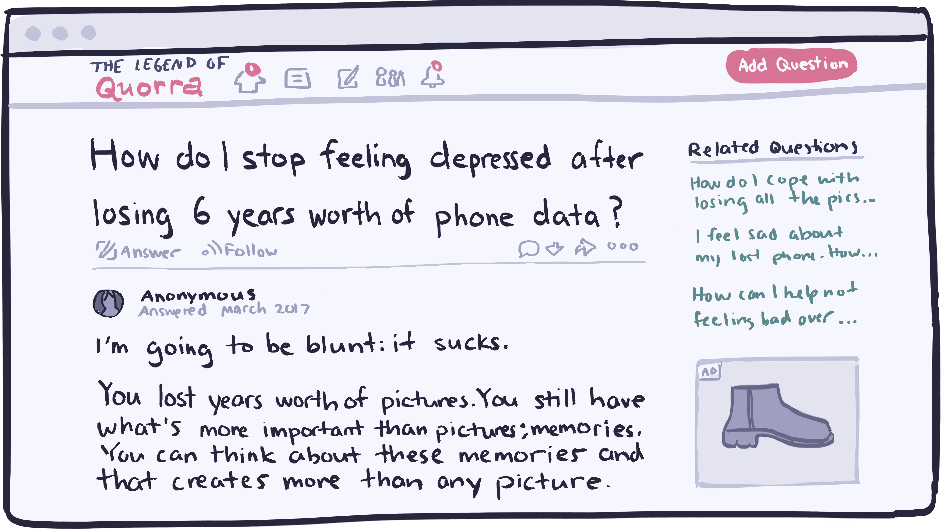 THE LEGEND OF
Quorra
Add Question
How do I stop feeling depressed after
losing 6 years worth of phone data?
Answer Follow
Anonymous
Answered March 2017
I'm going to be blunt: it sucks.
You lost years worth of pictures. You still have
what's more important than pictures; memories.
You can think about these memories and
that creates more than any picture.
Related Questions
How do I cope with
losing all the pics...
I feel sad about
my lost phone. How...
How can I help not
feeling bad over ...
AD